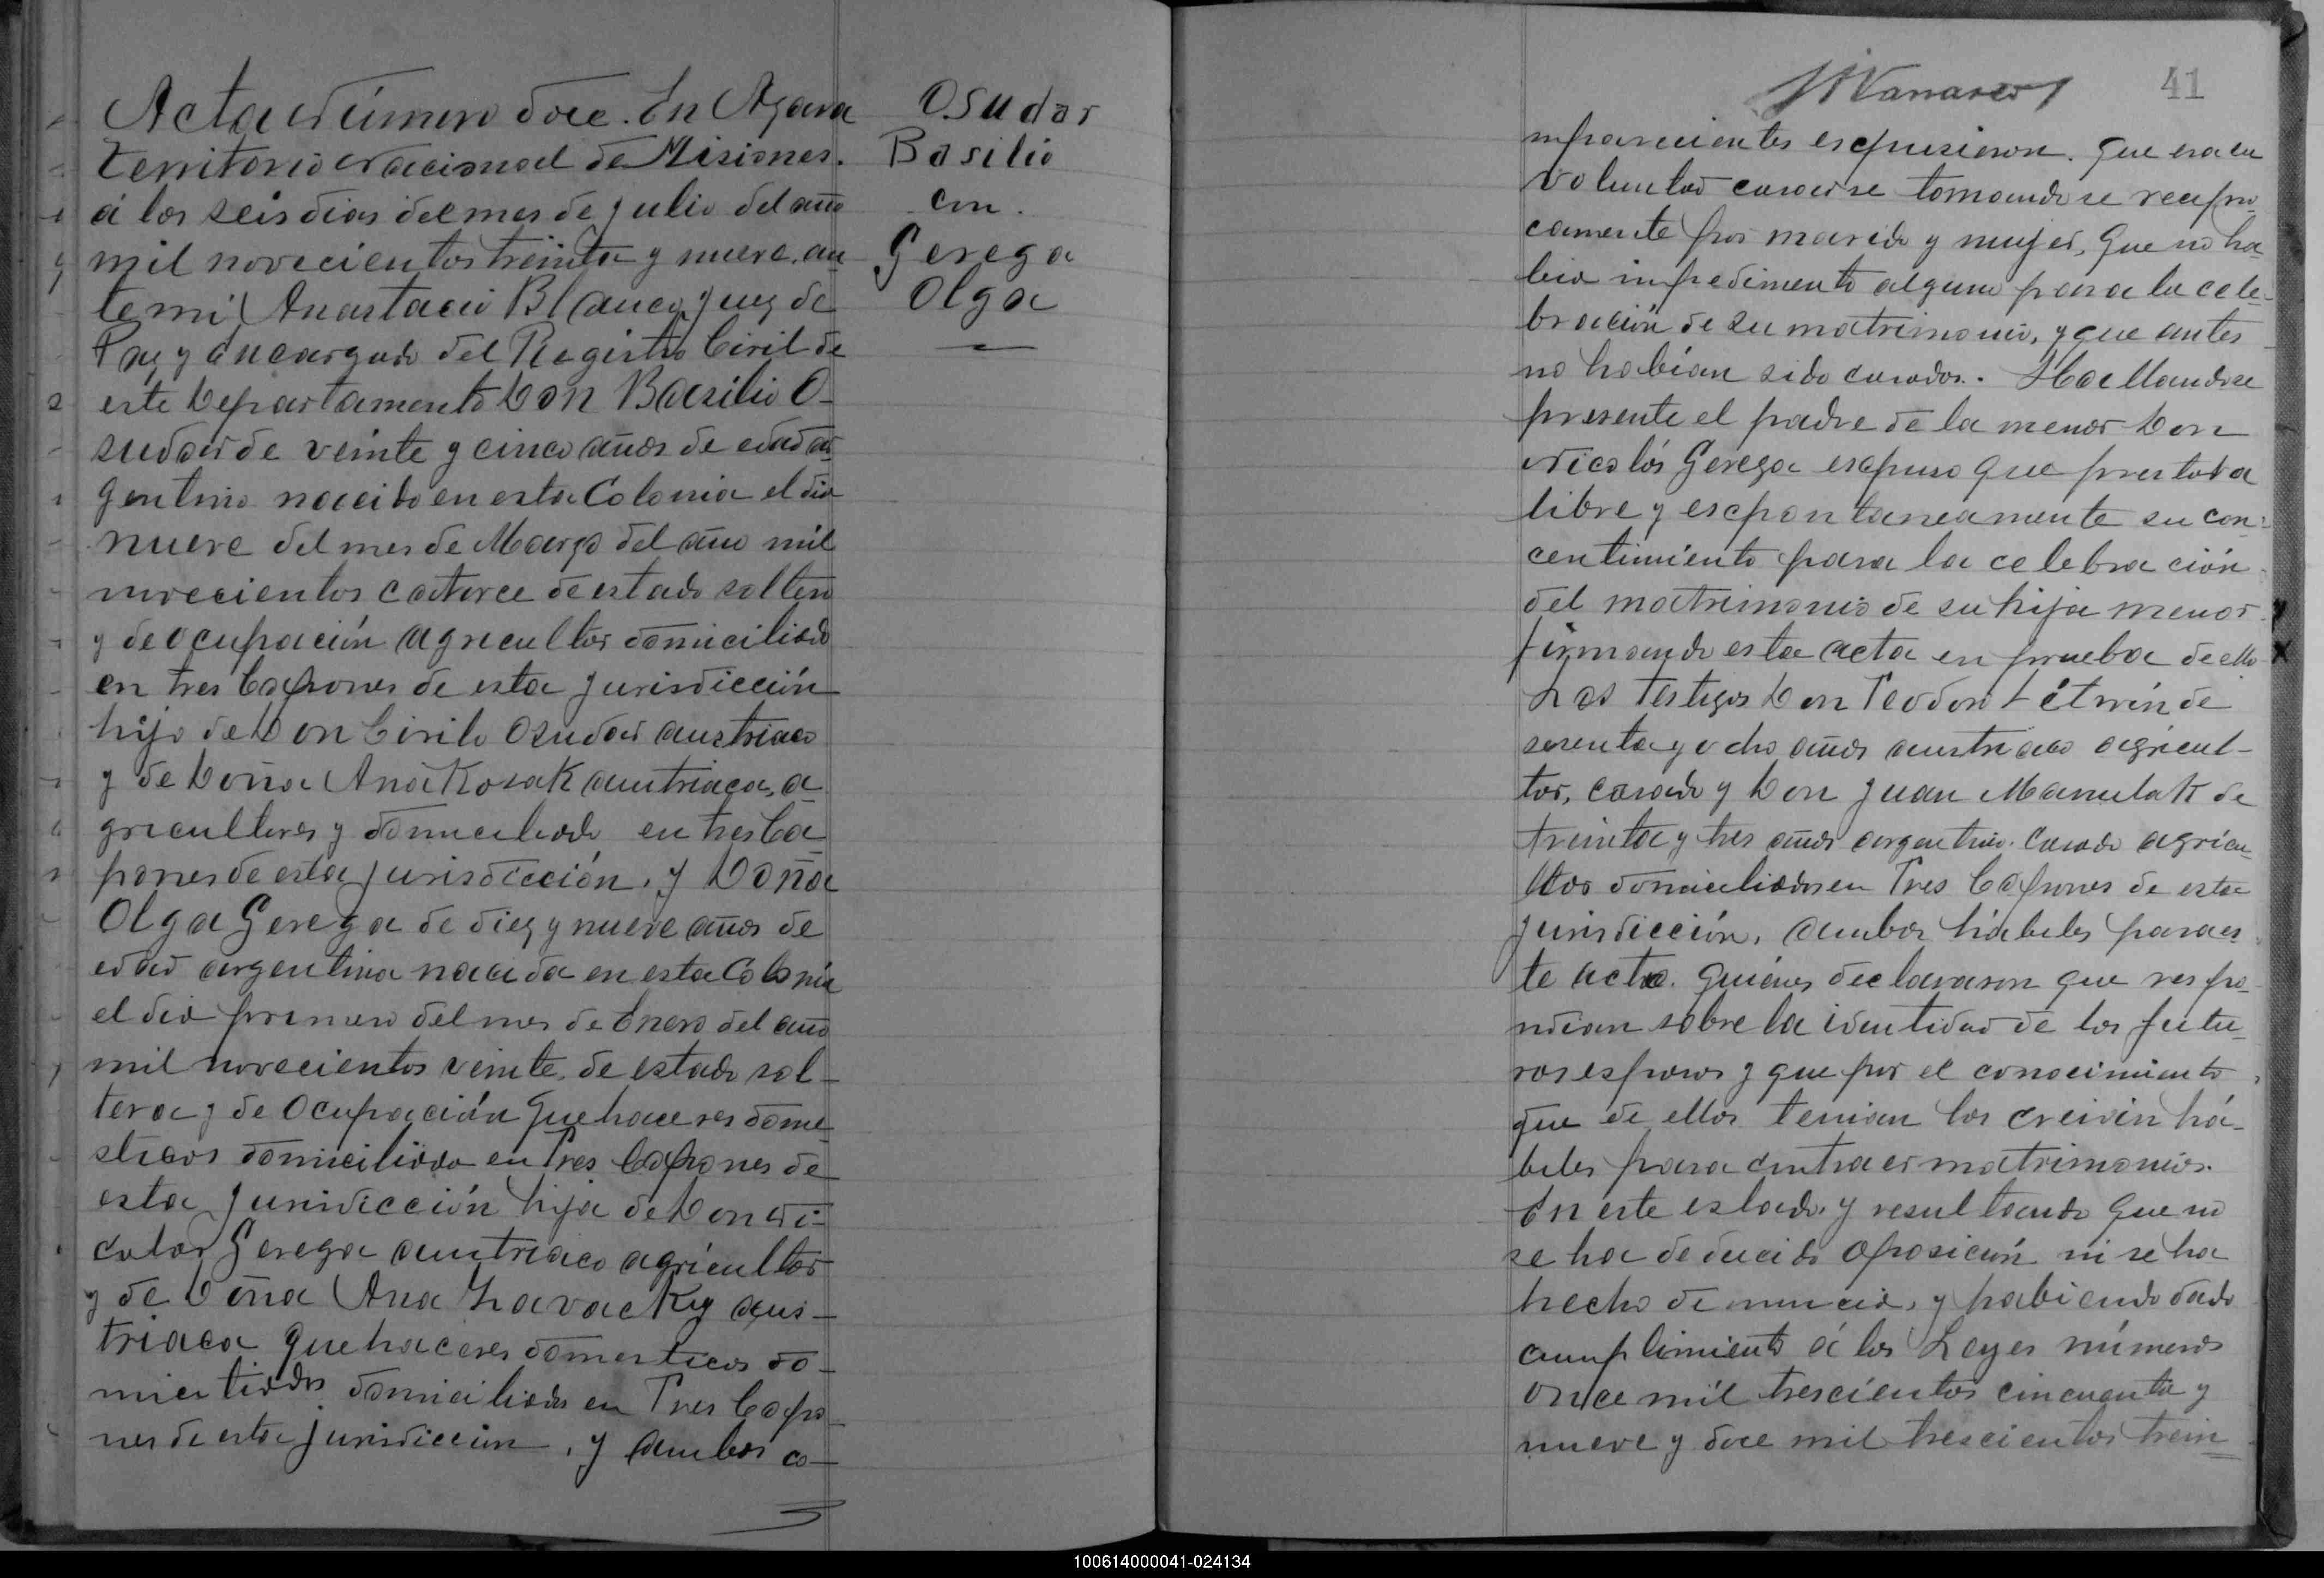 Acta Número doce. En Azara
territorio Nacional de Misiones.
á los seis dias del mes de Julio del año
mil novecientos treinta y nueve, an
te mi Anastacio Blanco, Juez de
Paz y encargado del Registro Civil de
este Departamento Don Basilio O-
sudar de veinte y cinco años de edad ar
gentino nacido en esta Colonia el dia
nueve del mes de Marzo del año mil
novecientos catorce de estado soltero
y de ocupación agricultor domiciliado
en tres Capones de esta Jurisdicción
hijo de Don Cirilo Osudar austriaco
y de Doña Ana Kozak austriaca, a
gricultores y domiciliado en tres Ca
pones de esta Jurisdicción, y Doña
Olga Gerega de diez y nueve años de
edad argentina nacida en esta Colonia
el dia primero del mes de Enero del año
mil novecientos veinte, de estado sol-
tera y de ocupación quehaceres dome
sticos domiciliada en Tres Capones de
esta Jurisdicción hija de Don Ni-
colas Gerega austriaco agricultor
y de Doña Ana aus-
triaca quehaceres domesticos do-
miciliados domiciliados en Tres Capo
nes de esta jurisdiccion, y ambos co-
Osudar
Basilio
con.
Gerega
Olga
41
mparecientes esepusieron. Que era su
voluntad casarse tomandose recipro
camente por marido y mujer, Que no ha
bia impedimento alguno para la cele-
bración de su matrimonio, y que antes
no habian sido casados. Hallandose
presente el padre de la menor Don
Nicolás Gerega esepuso que prestaba
libre y esepontaneamente su con-
centimiento para la celebración
del matrimonio de su hija menor
firmando esta acta en prueba de ello
Los testigos Don Teodoro de
sesenta y ocho años austriaco agricul-
tor, casado y Don Juan Manulak de
treinta y tres años argentino. Casado agricu
ltor domiciliados en Tres Capones de esta
jurisdicción, ambos hábiles para es
te acto. Quiénes declararon que respo
ndian sobre la identidad de los futu
ros esposos y que por el conocimiento
que de ellos tenian los creian há-
biles para contraer matrimonio.
En este estado, y resultando que no
se ha deducido oposición ni se ha
hecho denuncia, y habiendo dado
cumplimiento á las Leyes números
once mil trescientos cincuenta y
nueve y doce mil trescientos trein
100614000041-024134